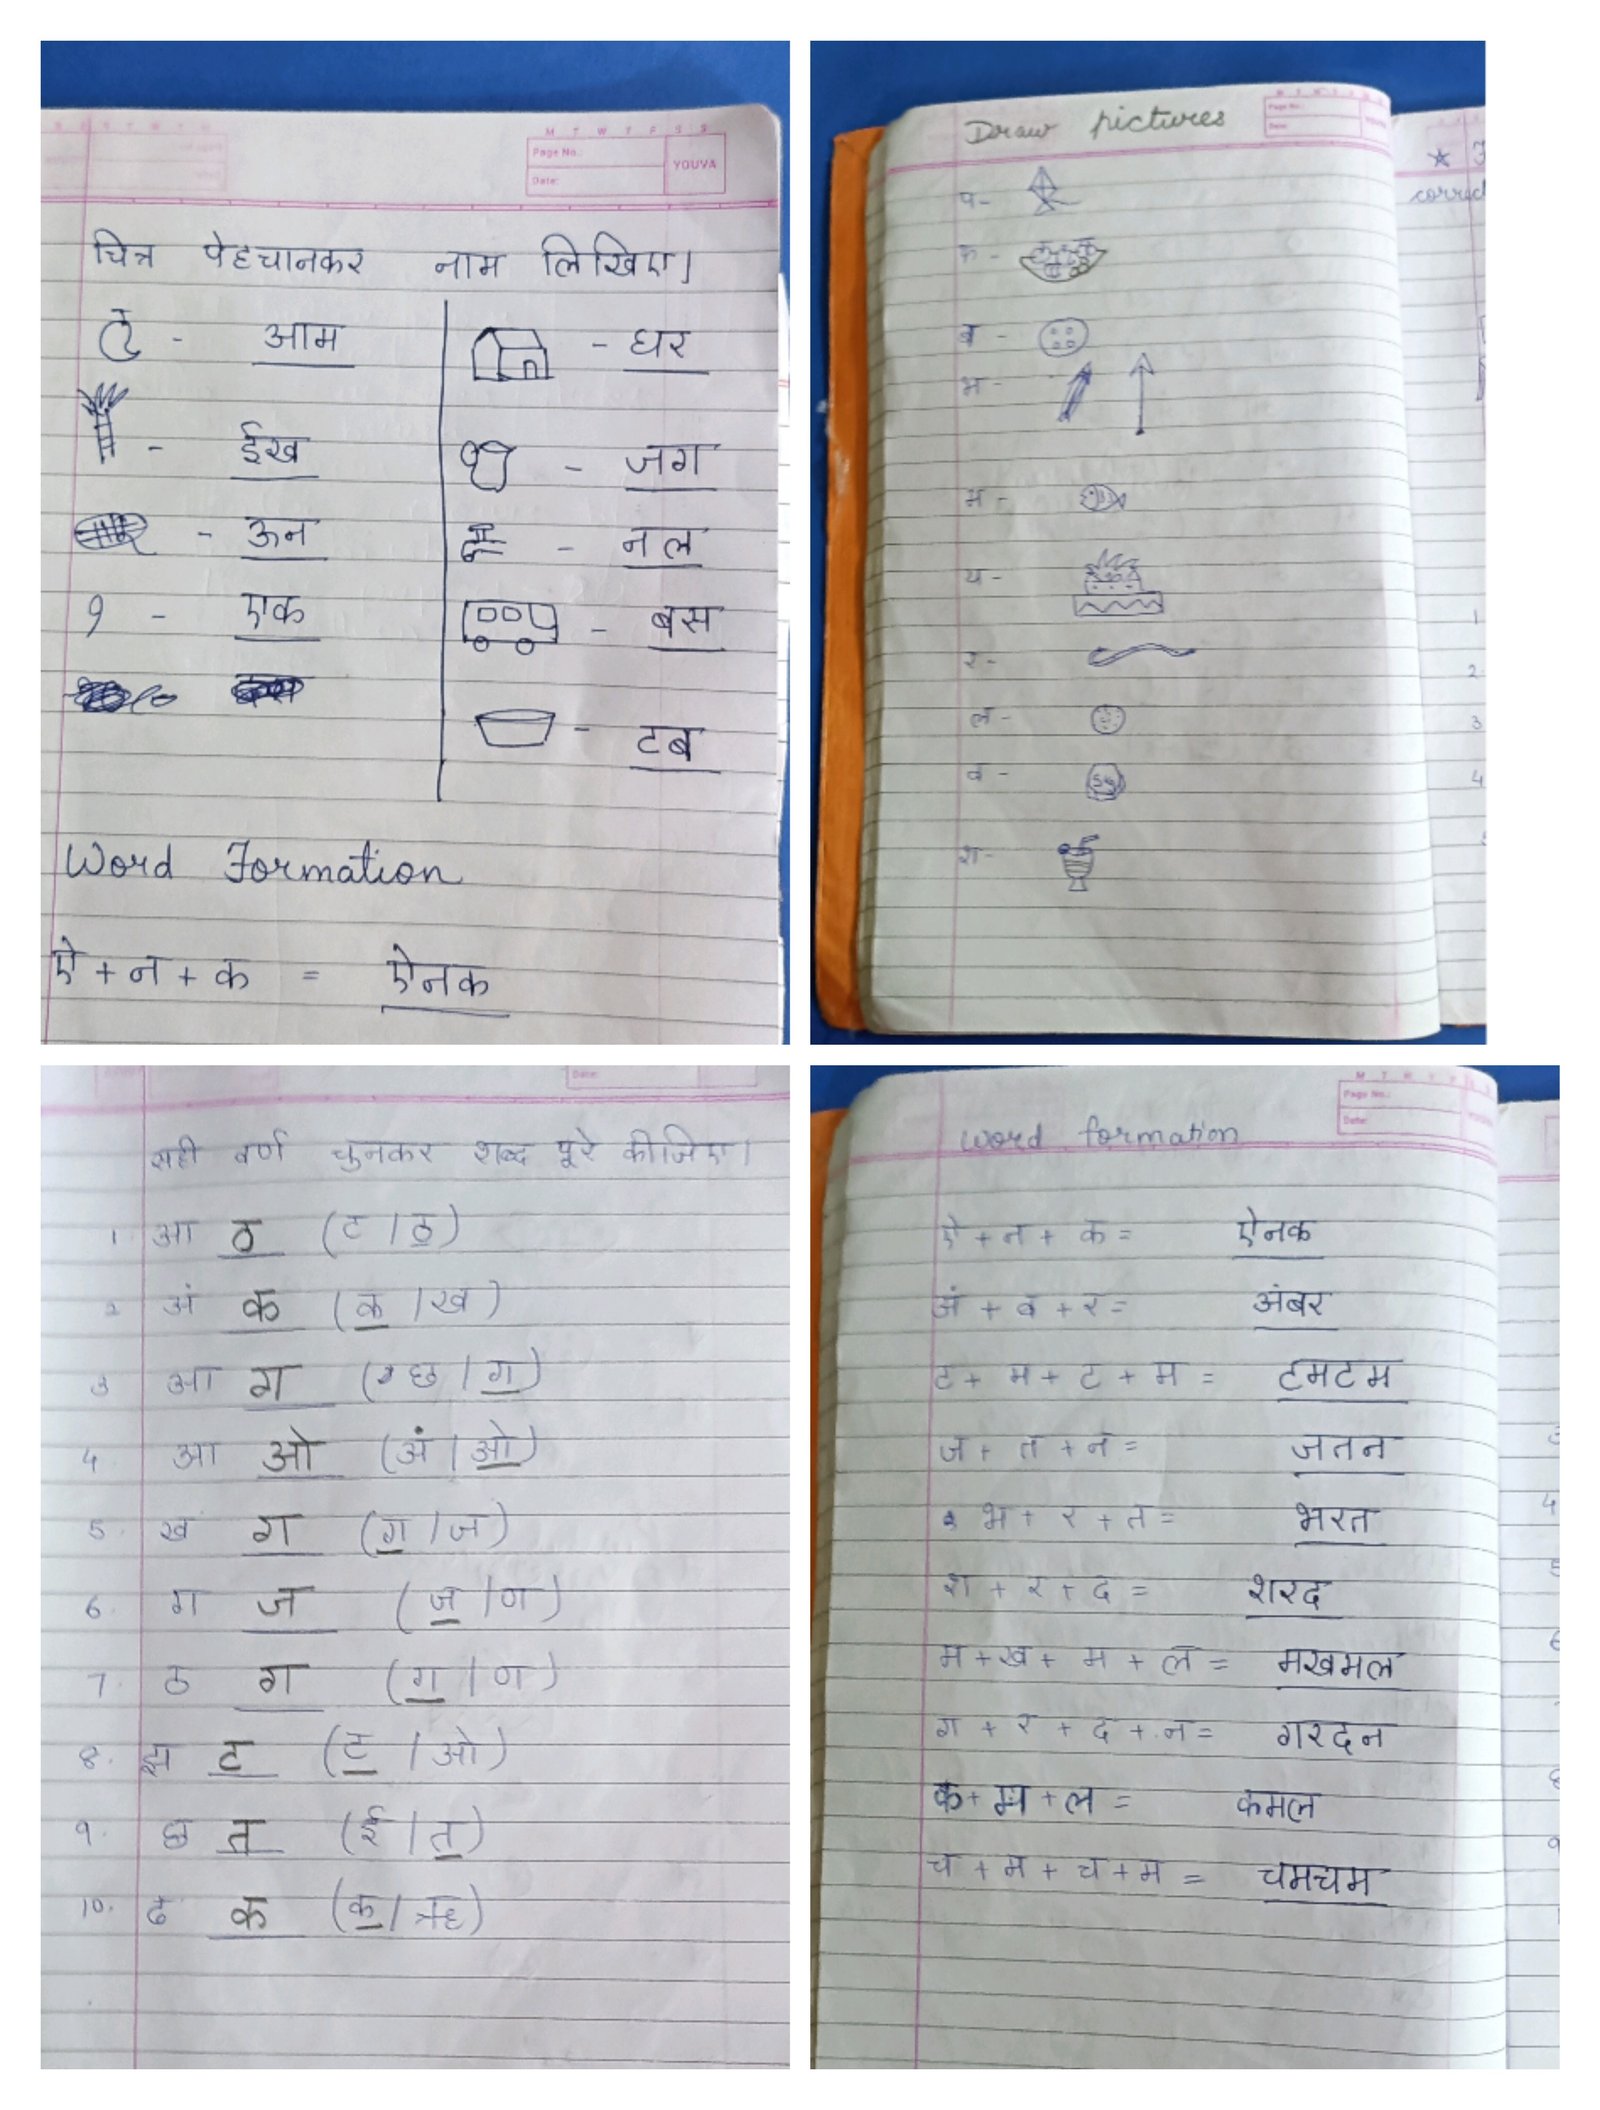 M T W T F S S
Page No.:
Date:
YOUVA
चित्र पेहचानकर नाम लिखिए।
- आम
- ईख
- ऊन
१ - एक
- घर
- जग
- नल
- बस
- टब
Word Formation
ऐ + न + क = ऐनक
Draw pictures
Page No.:
Date:
प -
फ -
ब -
भ -
म -
य -
र -
ल -
व -
श -
correct
1
2.
3
4
Date:
सही वर्ण चुनकर शब्द पूरे कीजिए।
1 आ ठ (ट / ठ)
2 अं क (क / ख)
3 आ ग (छ / ग)
4 आ ओ (अं / ओ)
5. ख ग (ग / ज)
6. ग ज (ज / ण)
7. ठ ग (ग / ण)
8. झ ट (ट / ओ)
9. छ त (ई / त)
10. ढ क (क / ऋ)
M T W T F S S
Page No.:
Date:
word formation
ऐ + न + क = ऐनक
अं + ब + र = अंबर
ट + म + ट + म = टमटम
ज + त + न = जतन
भ + र + त = भरत
श + र + द = शरद
म + ख + म + ल = मखमल
ग + र + द + न = गरदन
क + म + ल = कमल
च + म + च + म = चमचम